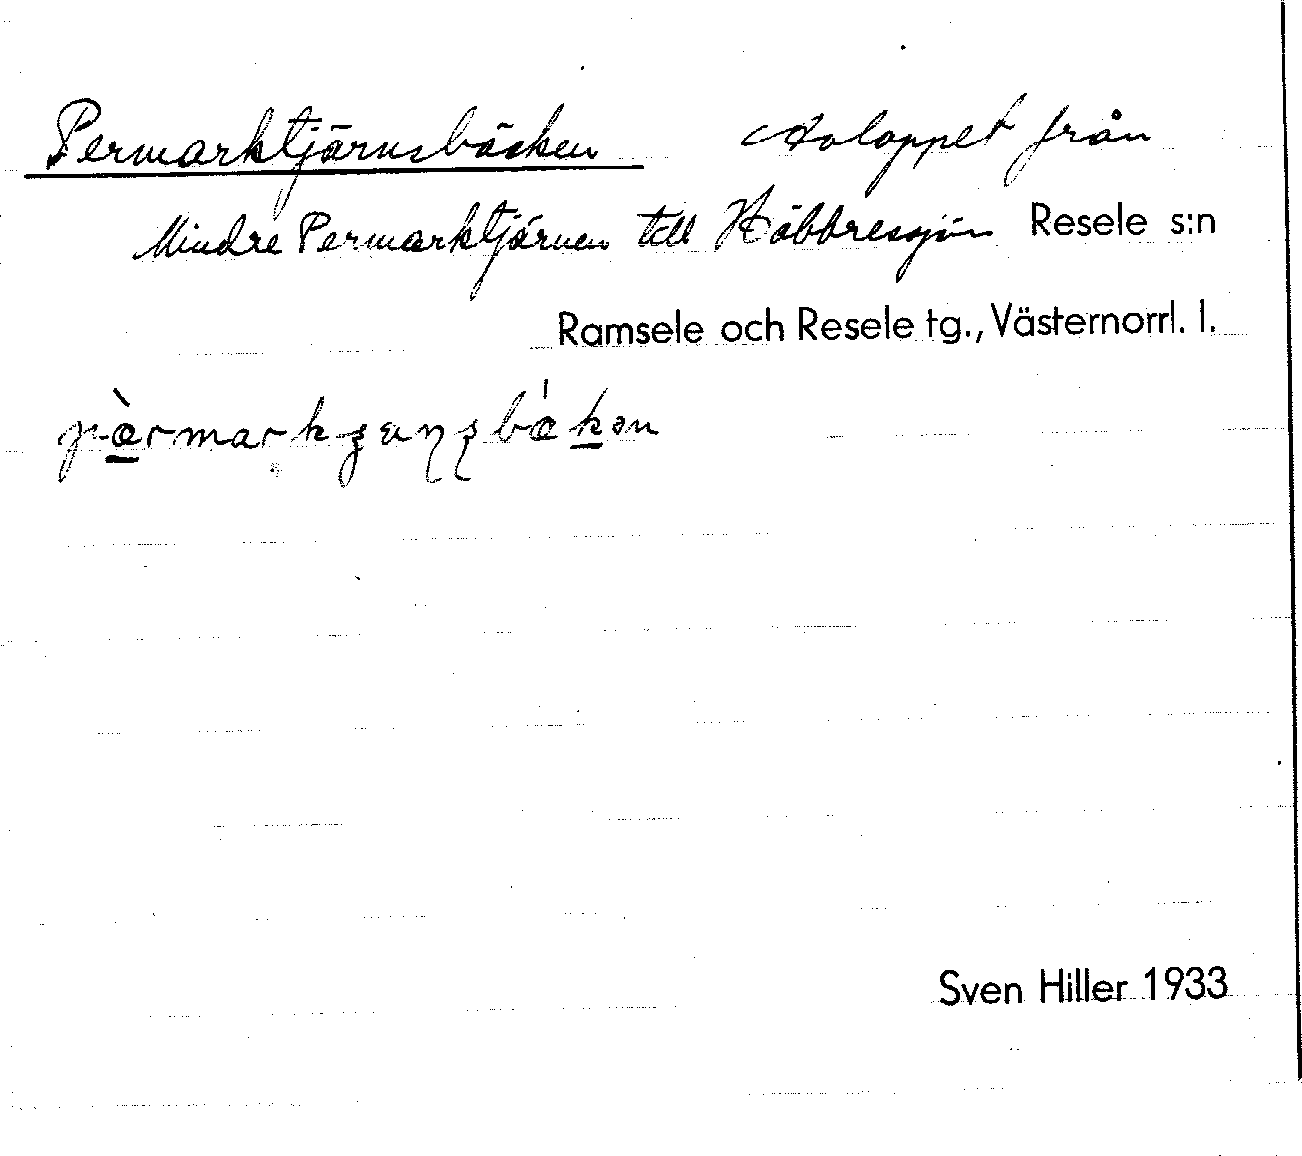 Permarktjärnsbäcken Avloppet från
Mindre Permarktjärnen till Häbbressjön Resele s:n
Ramsele och Resele tg., Västernorrl. l.
Sven Hiller 1933